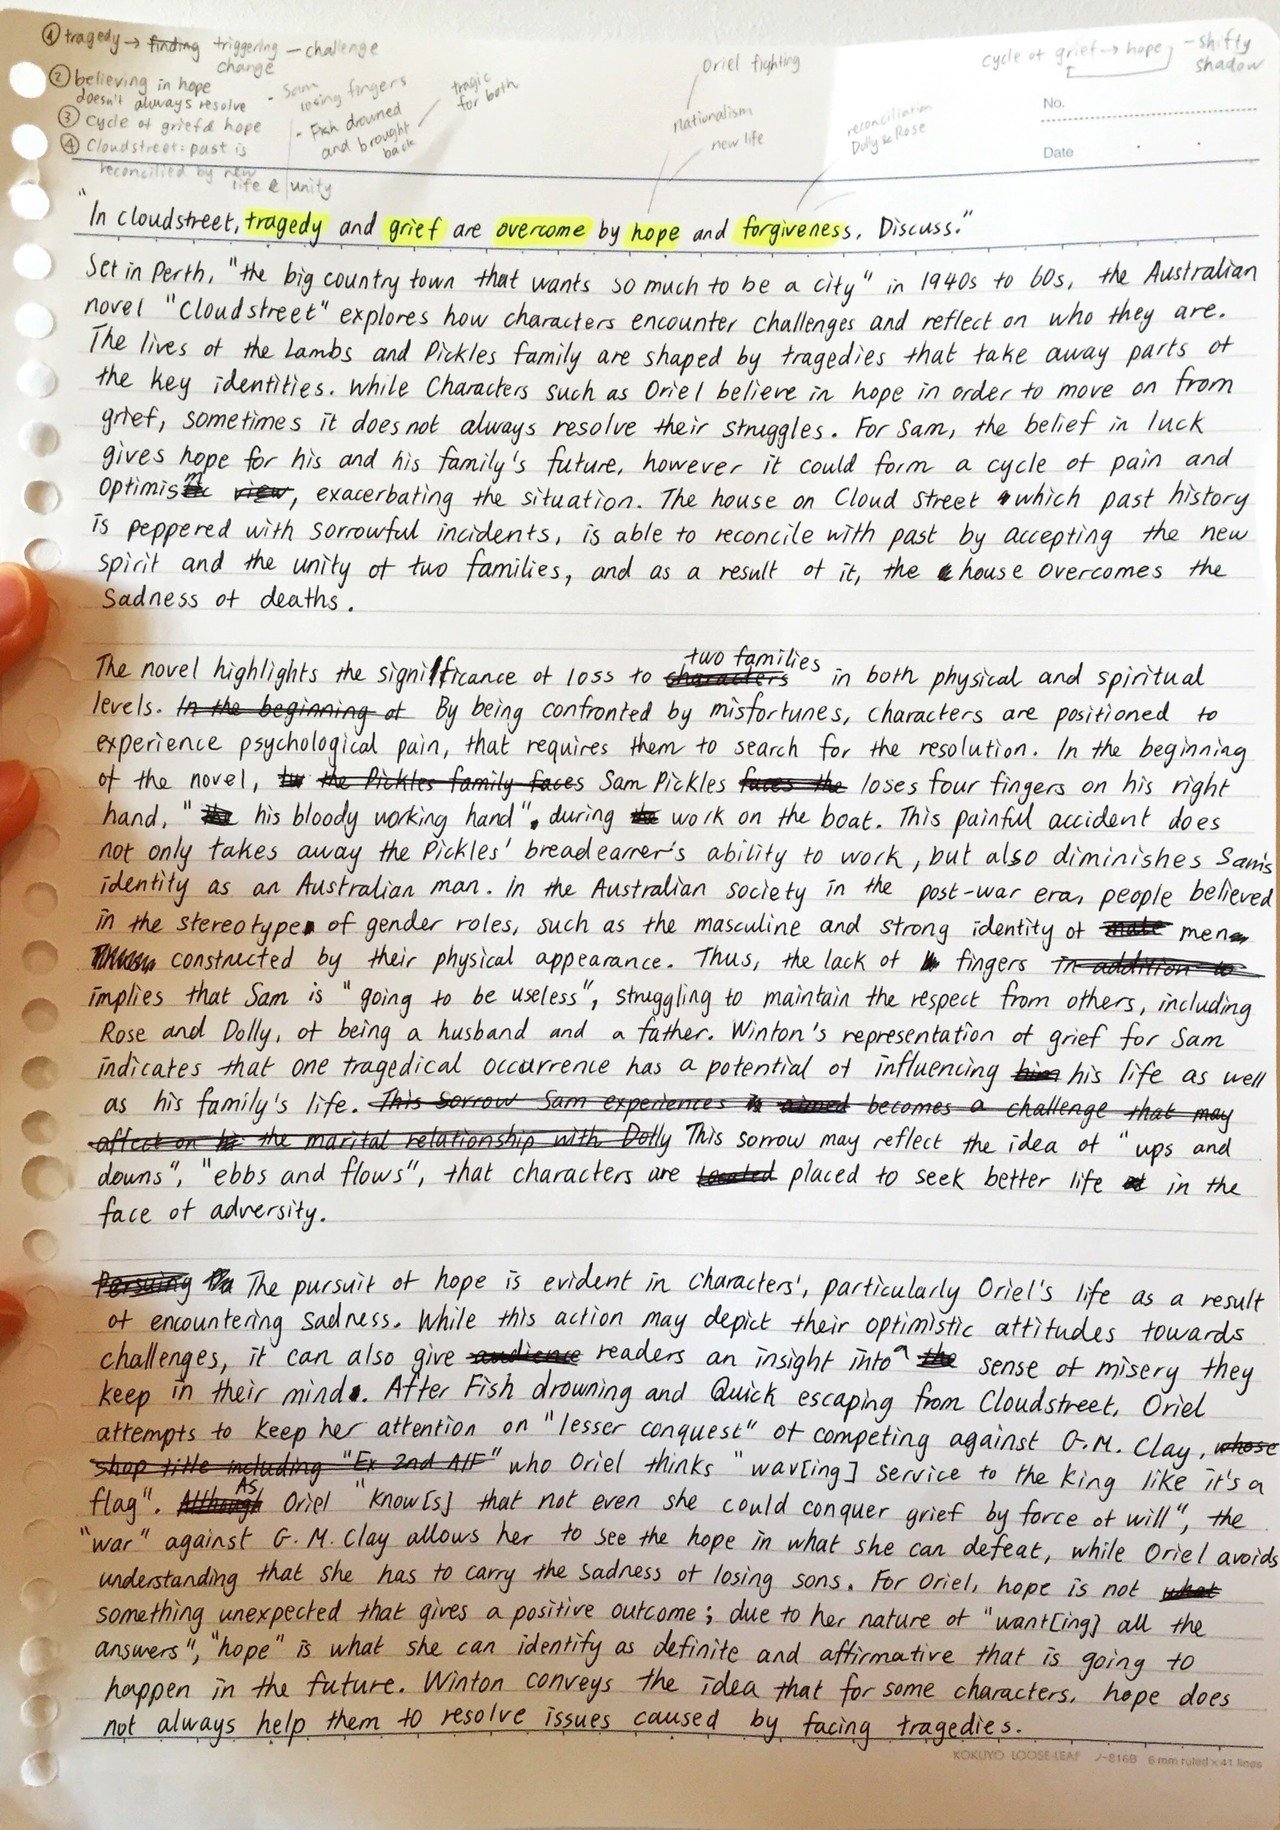 ① tragedy → finding triggering change — challenge
② believing in hope doesn't always resolve
③ cycle of grief & hope
④ Cloudstreet: past is reconcilied by new life & unity
- Sam losing fingers
- Fish drowned and brought back
tragic for both
Oriel fighting
nationalism
new life
reconciliation Dolly & Rose
cycle of grief → hope
- shifty shadow
No.
Date
"In cloudstreet, tragedy and grief are overcome by hope and forgiveness. Discuss."
Set in Perth, "the big country town that wants so much to be a city" in 1940s to 60s, the Australian
novel "Cloudstreet" explores how characters encounter challenges and reflect on who they are.
The lives of the Lambs and Pickles family are shaped by tragedies that take away parts of
the key identities. While Characters such as Oriel believe in hope in order to move on from
grief, sometimes it does not always resolve their struggles. For Sam, the belief in luck
gives hope for his and his family's future, however it could form a cycle of pain and
optimism view, exacerbating the situation. The house on Cloud Street which past history
is peppered with sorrowful incidents, is able to reconcile with past by accepting the new
spirit and the unity of two families, and as a result of it, the house overcomes the
sadness of deaths.
The novel highlights the significance of loss to characters two families in both physical and spiritual
levels. In the beginning of By being confronted by misfortunes, characters are positioned to
experience psychological pain, that requires them to search for the resolution. In the beginning
of the novel, the Pickles family faces Sam Pickles faces the loses four fingers on his right
hand, "the his bloody working hand", during the work on the boat. This painful accident does
not only takes away the Pickles' breadearrer's ability to work, but also diminishes Sam's
identity as an Australian man. In the Australian society in the post-war era, people believed
in the stereotype of gender roles, such as the masculine and strong identity of male men
constructed by their physical appearance. Thus, the lack of fingers in addition to
implies that Sam is "going to be useless", struggling to maintain the respect from others, including
Rose and Dolly, of being a husband and a father. Winton's representation of grief for Sam
indicates that one tragedical occurrence has a potential of influencing him his life as well
as his family's life. This sorrow Sam experiences is aimed becomes a challenge that may
affect on his the marital relationship with Dolly This sorrow may reflect the idea of "ups and
downs", "ebbs and flows", that characters are located placed to seek better life at in the
face of adversity.
Persuing The pursuit of hope is evident in characters', particularly Oriel's life as a result
of encountering sadness. While this action may depict their optimistic attitudes towards
challenges, it can also give audience readers an insight into a the sense of misery they
keep in their mind. After Fish drowning and Quick escaping from Cloudstreet, Oriel
attempts to keep her attention on "lesser conquest" of competing against G.M. Clay, whose
shop title including "Ex 2nd AIF" who Oriel thinks "wav[ing] service to the King like it's a
flag". Although As Oriel "know[s] that not even she could conquer grief by force of will", the
"war" against G.M. Clay allows her to see the hope in what she can defeat, while Oriel avoids
understanding that she has to carry the sadness of losing sons. For Oriel, hope is not what
something unexpected that gives a positive outcome; due to her nature of "want[ing] all the
answers", "hope" is what she can identify as definite and affirmative that is going to
happen in the future. Winton conveys the idea that for some characters, hope does
not always help them to resolve issues caused by facing tragedies.
KOKUYO LOOSE-LEAF ノ-816B 6 mm ruled × 41 lines